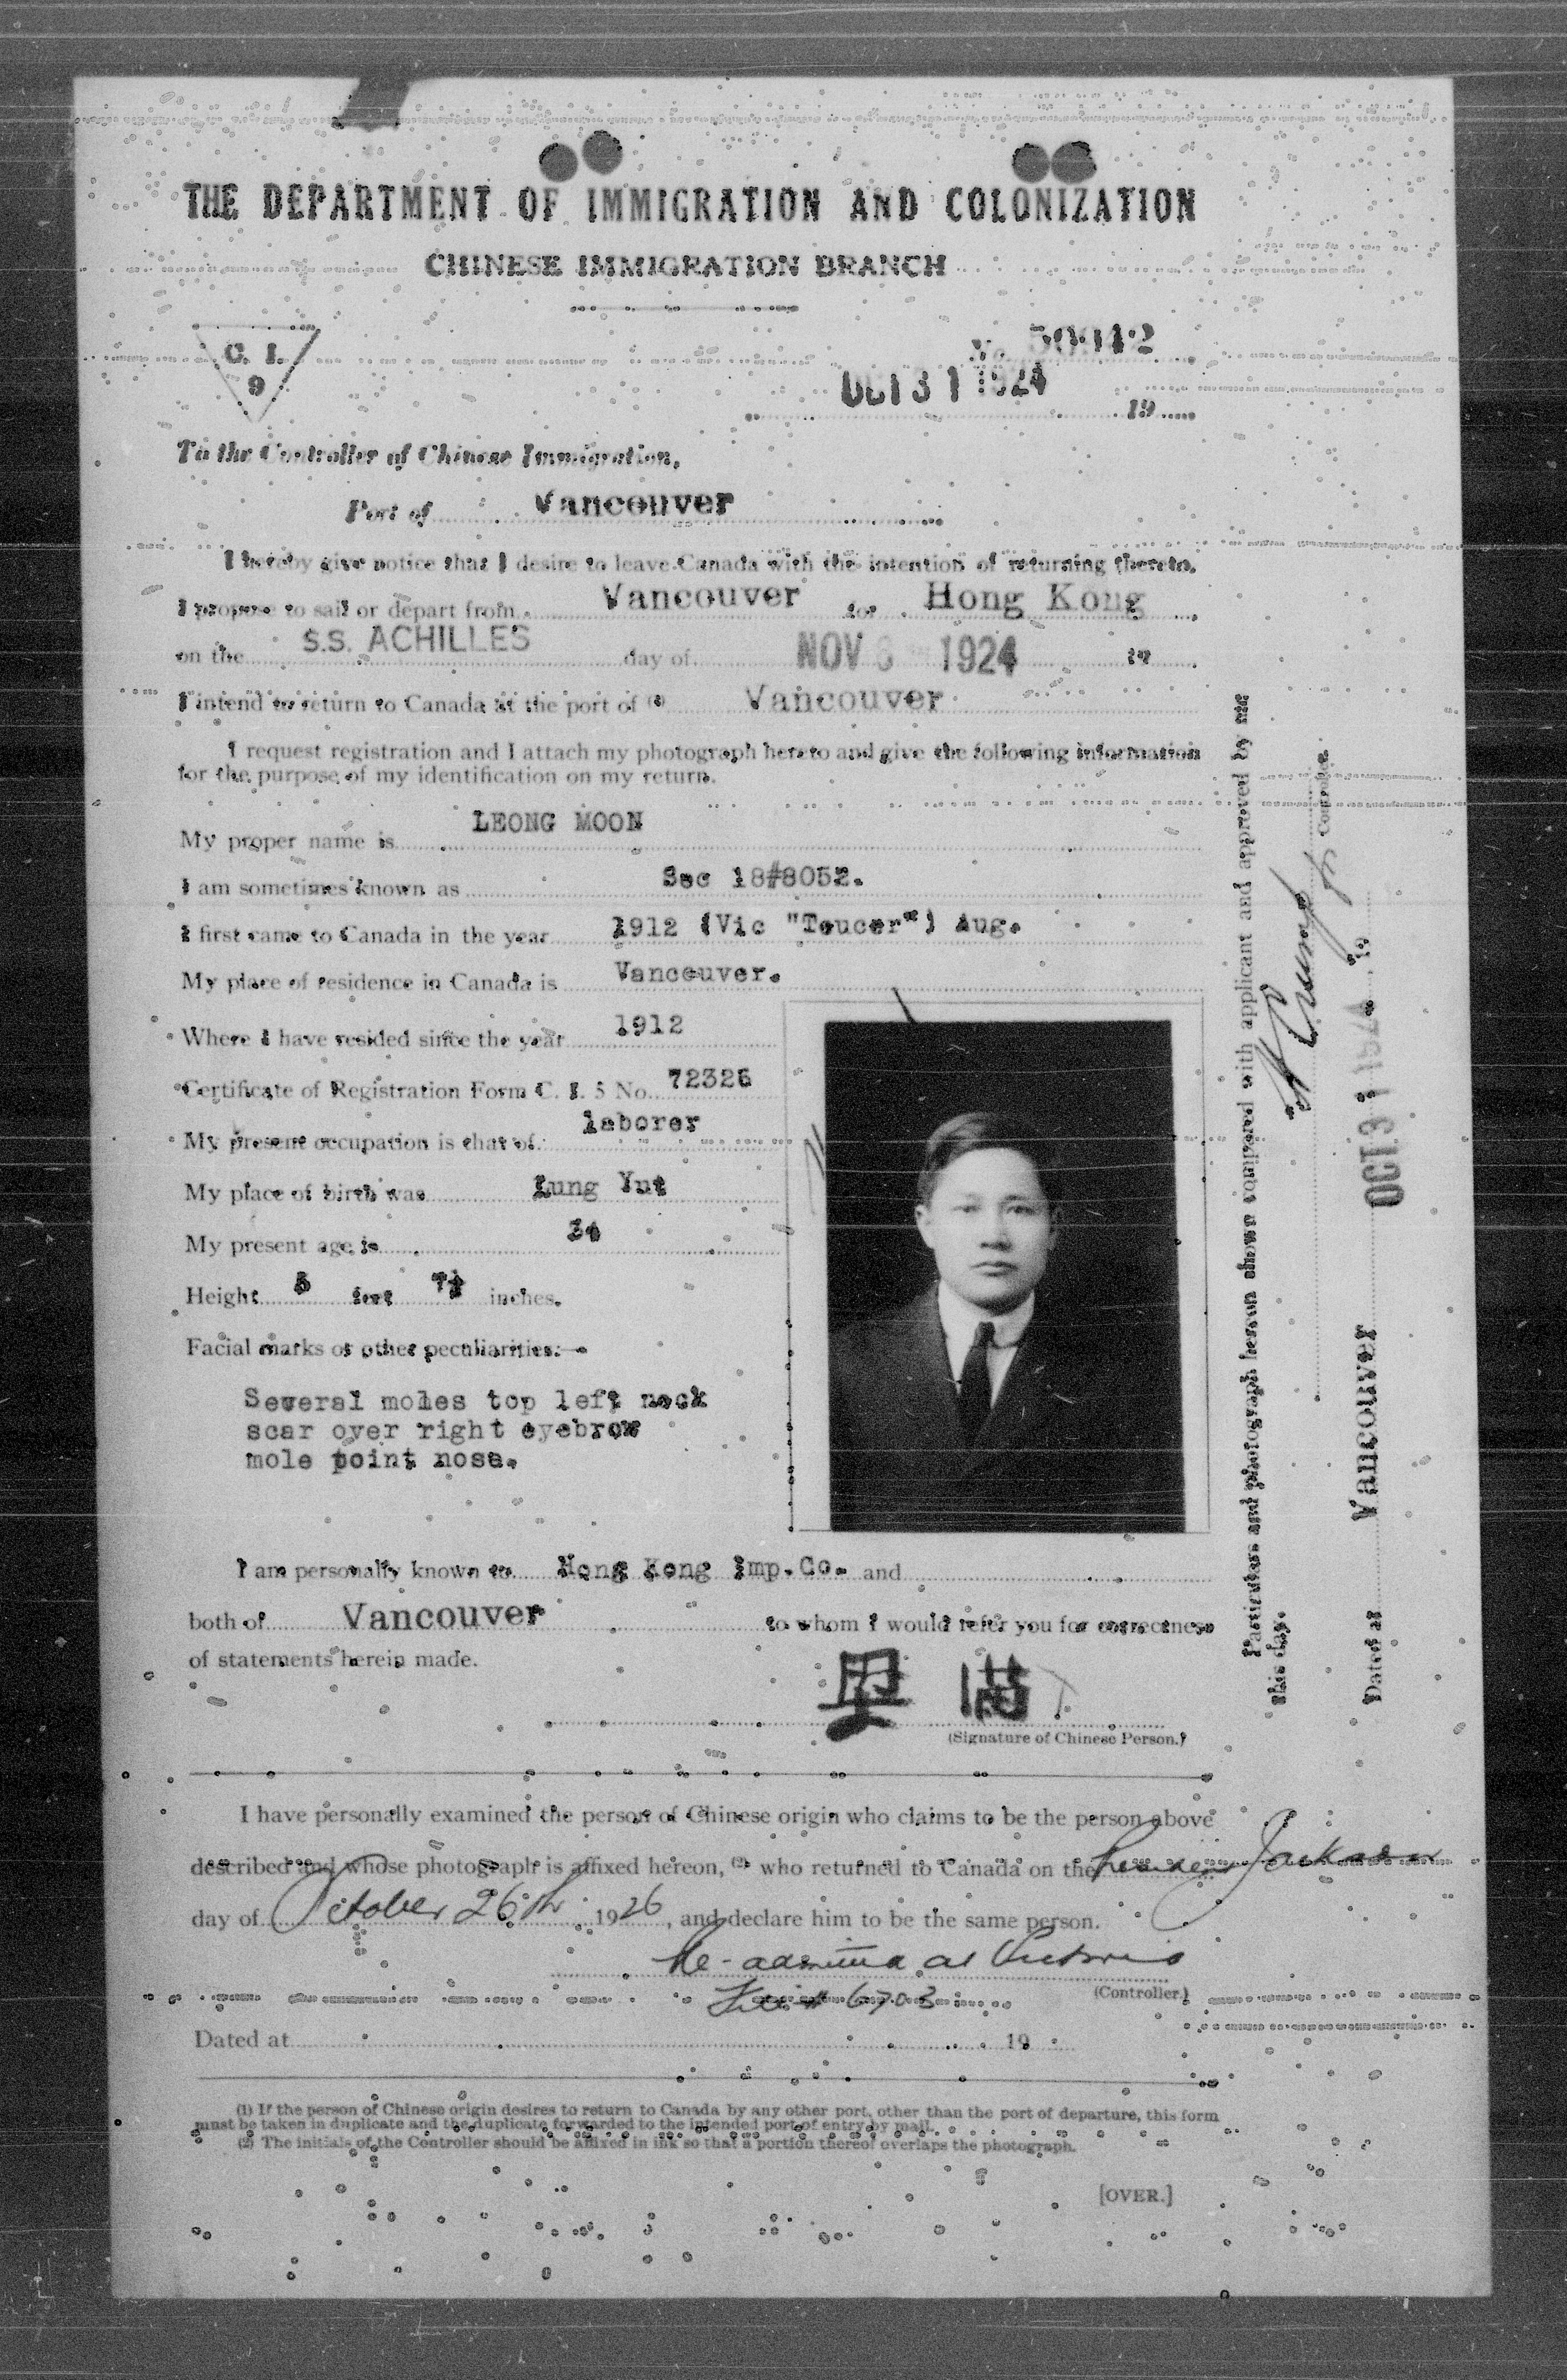 THE DEPARTMENT OF IMMIGRATION AND COLONIZATION
CHINESE IMMIGRATION BRANCH
C. I.
9
No.
OCT 31 1924 19
To the Controller of Chinese Immigration,
Port of Vancouver
I hereby give notice that I desire to leave Canada with the intention of returning thereto.
I propose to sail or depart from Vancouver for Hong Kong
on the S.S. ACHILLES day of NOV 1924 19
I intend to return to Canada at the port of (1) Vancouver
I request registration and I attach my photograph hereto and give the following information
for the purpose of my identification on my return.
My proper name is LEONG MOON
I am sometimes known as Sec 18#8052.
I first came to Canada in the year 1912 (Vic "Teucer") Aug.
My place of residence in Canada is Vancouver.
Where I have resided since the year 1912
Certificate of Registration Form C. I. 5 No. 72326
My present occupation is that of laborer
My place of birth was Lung Yut
My present age is 34
Height 5 feet inches.
Facial marks or other peculiarities:—
Several moles top left neck
scar over right eyebrow
mole point nose.
I am personally known to Hong Kong Imp. Co. and
both of Vancouver to whom I would refer you for correctness
of statements herein made.
滿
(Signature of Chinese Person.)
I have personally examined the person of Chinese origin who claims to be the person above
described and whose photograph is affixed hereon, (2) who returned to Canada on the Jackson
day of October 26th 1926, and declare him to be the same person.
Re-admitted at Victoria
(Controller.)
6703
Dated at 19
(1) If the person of Chinese origin desires to return to Canada by any other port, other than the port of departure, this form
must be taken in duplicate and the duplicate forwarded to the intended port of entry by mail.
(2) The initials of the Controller should be affixed in ink so that a portion thereof overlaps the photograph.
[OVER.]
Particulars and photograph hereon shown compared with applicant and approved by me
this day.
Controller.
Dated at Vancouver OCT 31 1924 19